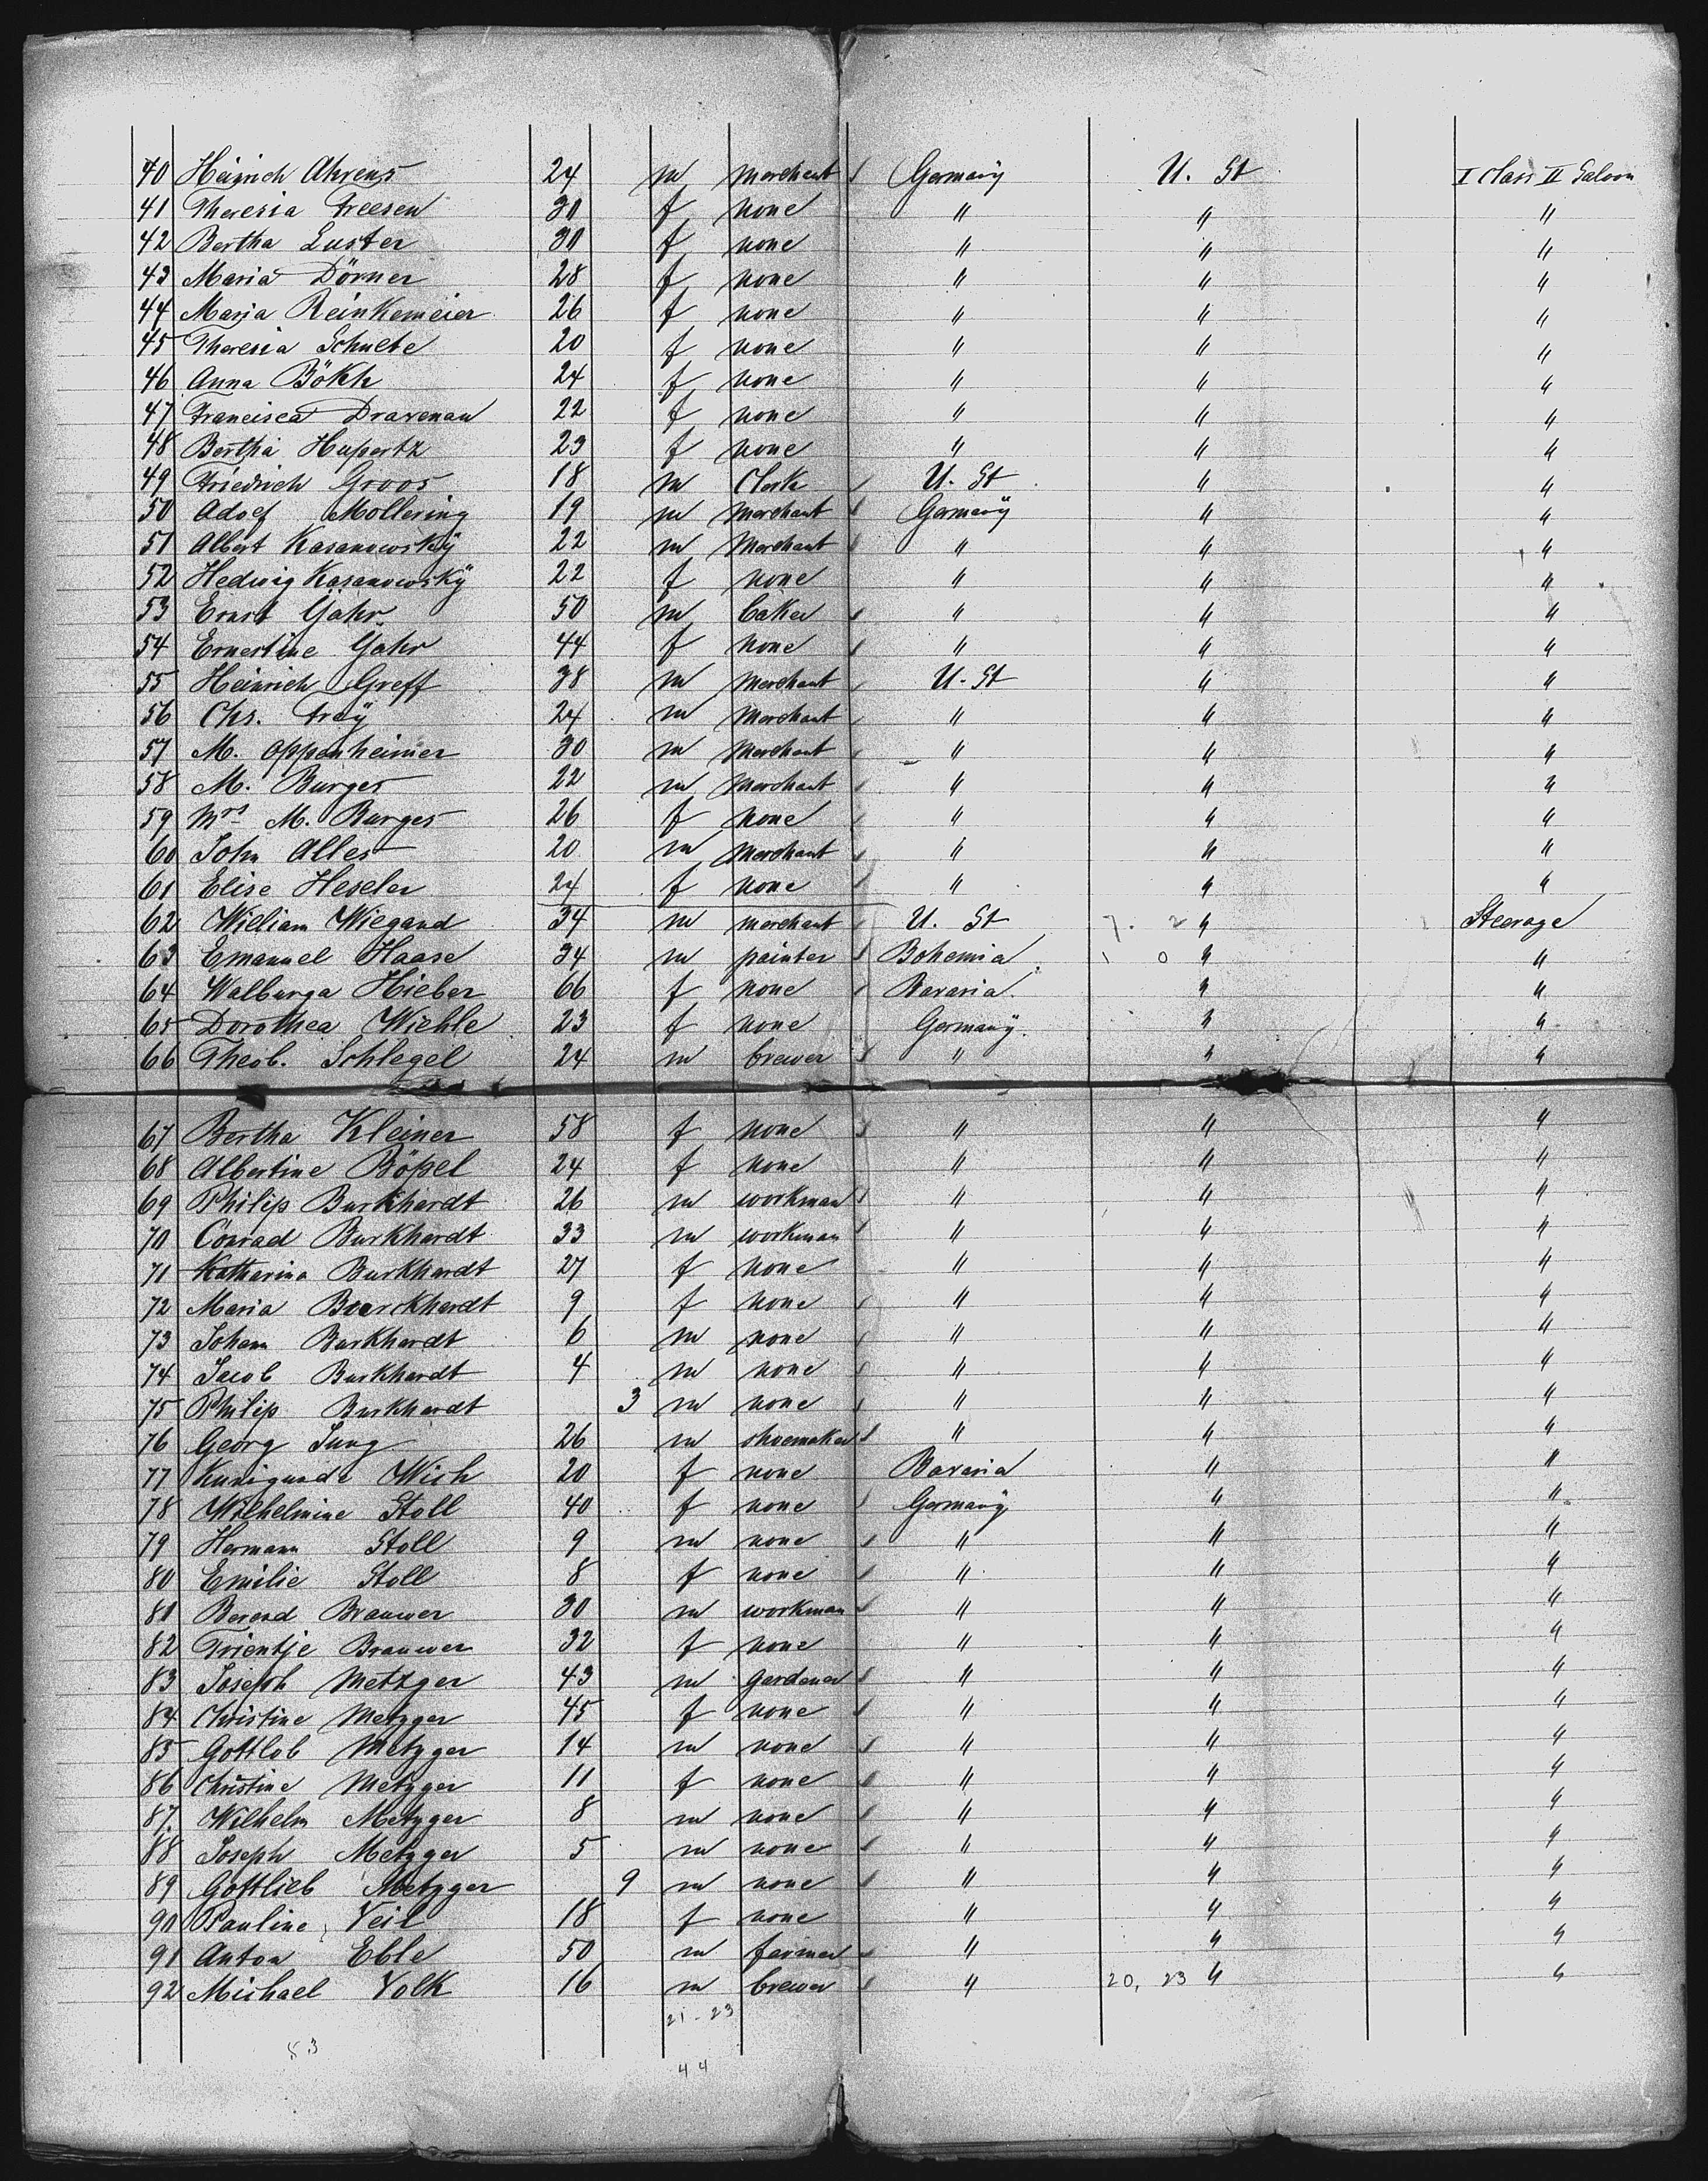 40 Heinrich Ahrens 24 m merchant Germany U. St I Class II Saloon
41 Theresia Freesen 30 f none " " "
42 Bertha Luster 30 f none " " "
43 Maria Dörner 28 f none " " "
44 Maria Reinkemeier 26 f none " " "
45 Theresia Schulte 20 f none " " "
46 Anna Bökh 24 f none " " "
47 Francisca Dravenau 22 f none " " "
48 Bertha Hupertz 23 f none " " "
49 Friedrich Groos 18 m Clerk U. St " "
50 Adolf Mollering 19 m merchant Germany " "
51 Albert Kasanowsky 22 m Merchant " " "
52 Hedwig Kasanowsky 22 f none " " "
53 Ernst Gahr 50 m baker " " "
54 Ernestine Gahr 44 f none " " "
55 Heinrich Greff 38 m merchant U. St " "
56 Chs. Frey 24 m merchant " " "
57 M. Oppenheimer 30 m merchant " " "
58 M. Burges 22 m merchant " " "
59 Mrs M. Burges 26 f none " " "
60 John Alles 20 m merchant " " "
61 Elise Heseler 24 f none " " "
62 William Wiegand 34 m merchant U. St " Steerage
63 Emanuel Haase 34 m painter Bohemia " "
64 Walburga Hieber 66 f none Bavaria " "
65 Dorothea Wiehle 23 f none Germany " "
66 Theob. Schlegel 24 m brewer " " "
67 Bertha Kleiner 58 f none " " "
68 Albertine Böpel 24 f none " " "
69 Philip Burkhardt 26 m workman " " "
70 Conrad Burkhardt 33 m workman " " "
71 Katharina Burkhardt 27 f none " " "
72 Maria Burckhardt 9 f none " " "
73 Johann Burkhardt 6 m none " " "
74 Jacob Burkhardt 4 m none " " "
75 Philip Burkhardt 3 m none " " "
76 Georg Jung 26 m shoemaker " " "
77 Kunigunda Wich 20 f none Bavaria " "
78 Wilhelmine Stoll 40 f none Germany " "
79 Hermann Stoll 9 m none " " "
80 Emilie Stoll 8 f none " " "
81 Berend Brauwer 30 m workman " " "
82 Trientje Brauwer 32 f none " " "
83 Joseph Metzger 43 m gardener " " "
84 Christine Metzger 45 f none " " "
85 Gottlob Metzger 14 m none " " "
86 Christine Metzger 11 f none " " "
87. Wilhelm Metzger 8 m none " " "
88 Joseph Metzger 5 m none " " "
89 Gottlieb Metzger 9 m none " " "
90 Pauline Veil 18 f none " " "
91 Anton Eble 50 m farmer " " "
92 Michael Volk 16 m brewer " 20, 23 " "
21-23
53
44